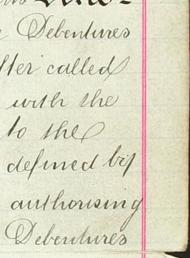 Debentures
called
with the
to the
defined by
authorising
Debentures